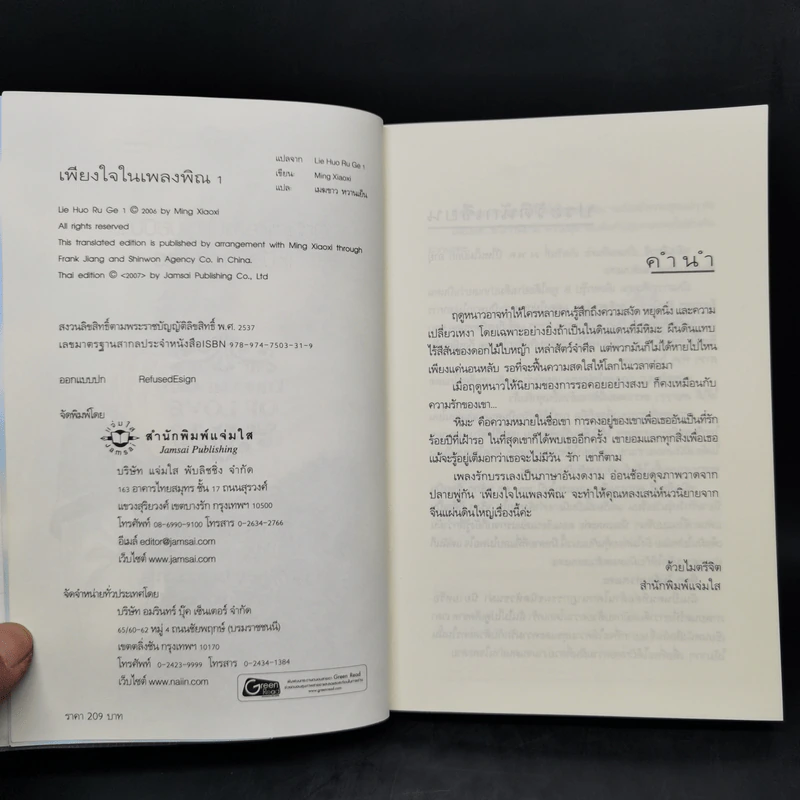 เพียงใจในเพลงพิณ 1
แปลจาก Lie Huo Ru Ge 1
เขียน Ming Xiaoxi
แปล เมฆขาว หวานเย็น
Lie Huo Ru Ge 1 © 2006 by Ming Xiaoxi
All rights reserved
This translated edition is published by arrangement with Ming Xiaoxi through
Frank Jiang and Shinwon Agency Co. in China.
Thai edition © <2007> by Jamsai Publishing Co., Ltd
สงวนลิขสิทธิ์ตามพระราชบัญญัติลิขสิทธิ์ พ.ศ. 2537
เลขมาตรฐานสากลประจำหนังสือISBN 978-974-7503-31-9
ออกแบบปก RefusedEsign
จัดพิมพ์โดย
แจ่มใส
Jamsai
สำนักพิมพ์แจ่มใส
Jamsai Publishing
บริษัท แจ่มใส พับลิชชิ่ง จำกัด
163 อาคารไทยสมุทร ชั้น 17 ถนนสุรวงศ์
แขวงสุริยวงศ์ เขตบางรัก กรุงเทพฯ 10500
โทรศัพท์ 08-6990-9100 โทรสาร 0-2634-2766
อีเมล์ editor@jamsai.com
เว็บไซต์ www.jamsai.com
จัดจำหน่ายทั่วประเทศโดย
บริษัท อมรินทร์ บุ๊ค เซ็นเตอร์ จำกัด
65/60-62 หมู่ 4 ถนนชัยพฤกษ์ (บรมราชชนนี)
เขตตลิ่งชัน กรุงเทพฯ 10170
โทรศัพท์ 0-2423-9999 โทรสาร 0-2434-1384
เว็บไซต์ www.naiin.com
Green
Green Read
www.greenread.com
ราคา 209 บาท
คำนำ
ฤดูหนาวอาจทำให้ใครหลายคนรู้สึกถึงความสงัด หยุดนิ่ง และความ
เปลี่ยวเหงา โดยเฉพาะอย่างยิ่งถ้าเป็นในดินแดนที่มีหิมะ ผืนดินแทบ
ไร้สีสันของดอกไม้ใบหญ้า เหล่าสัตว์จำศีล แต่พวกมันก็ไม่ได้หายไปไหน
เพียงแค่นอนหลับ รอที่จะฟื้นความสดใสให้โลกในเวลาต่อมา
เมื่อฤดูหนาวให้นิยามของการรอคอยอย่างสงบ ก็คงเหมือนกับ
ความรักของเขา...
'หิมะ' คือความหมายในชื่อเขา การคงอยู่ของเขาเพื่อเธออันเป็นที่รัก
ร้อยปีที่เฝ้ารอ ในที่สุดเขาก็ได้พบเธออีกครั้ง เขายอมแลกทุกสิ่งเพื่อเธอ
แม้จะรู้อยู่เต็มอกว่าเธอจะไม่มีวัน 'รัก' เขาก็ตาม
เพลงรักบรรเลงเป็นภาษาอันงดงาม อ่อนช้อยดุจภาพวาดจาก
ปลายพู่กัน 'เพียงใจในเพลงพิณ' จะทำให้คุณหลงเสน่ห์นวนิยายจาก
จีนแผ่นดินใหญ่เรื่องนี้ค่ะ
ด้วยไมตรีจิต
สำนักพิมพ์แจ่มใส